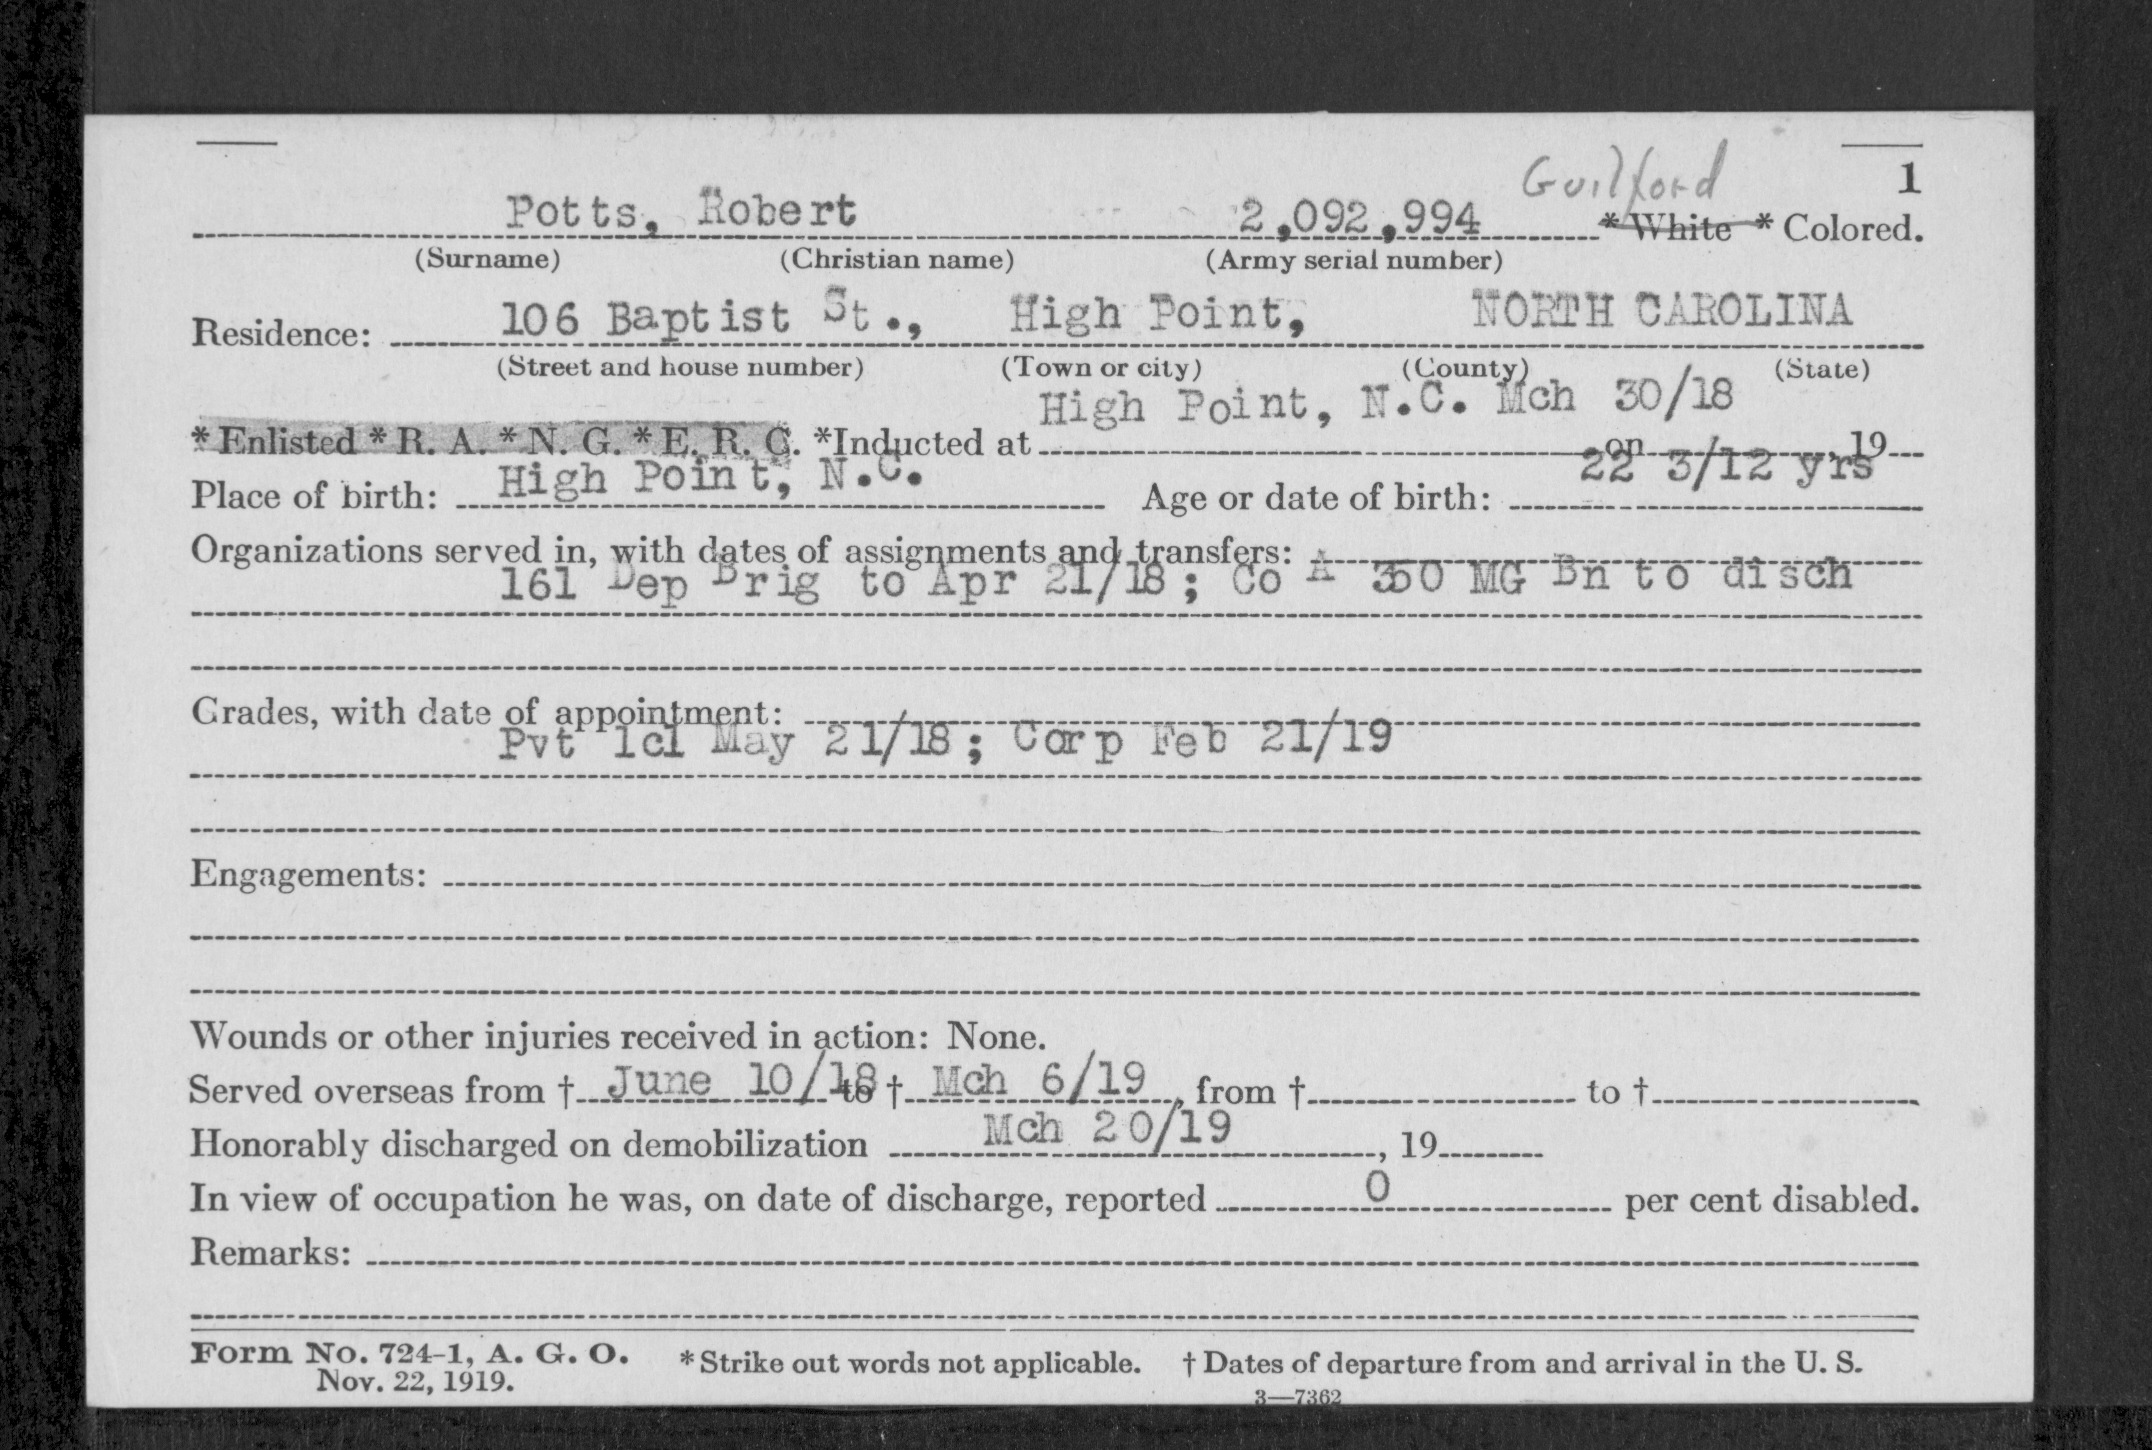 Guilford 1
Potts, Robert 2,092,994 * White * Colored.
(Surname) (Christian name) (Army serial number)
Residence: 106 Baptist St., High Point, NORTH CAROLINA
(Street and house number) (Town or city) (County) (State)
High Point, N.C. Mch 30/18
* Enlisted * R. A. * N. G. * E. R. C. *Inducted at on , 19
Place of birth: High Point, N.C. Age or date of birth: 22 3/12 yrs
Organizations served in, with dates of assignments and transfers:
161 Dep Brig to Apr 21/18; Co A 350 MG Bn to disch
Grades, with date of appointment:
Pvt 1cl May 21/18; Corp Feb 21/19
Engagements:
Wounds or other injuries received in action: None.
Served overseas from † June 10/18 to † Mch 6/19, from † to †
Honorably discharged on demobilization Mch 20/19, 19
In view of occupation he was, on date of discharge, reported 0 per cent disabled.
Remarks:
Form No. 724-1, A. G. O. * Strike out words not applicable. † Dates of departure from and arrival in the U. S.
Nov. 22, 1919.
3—7362